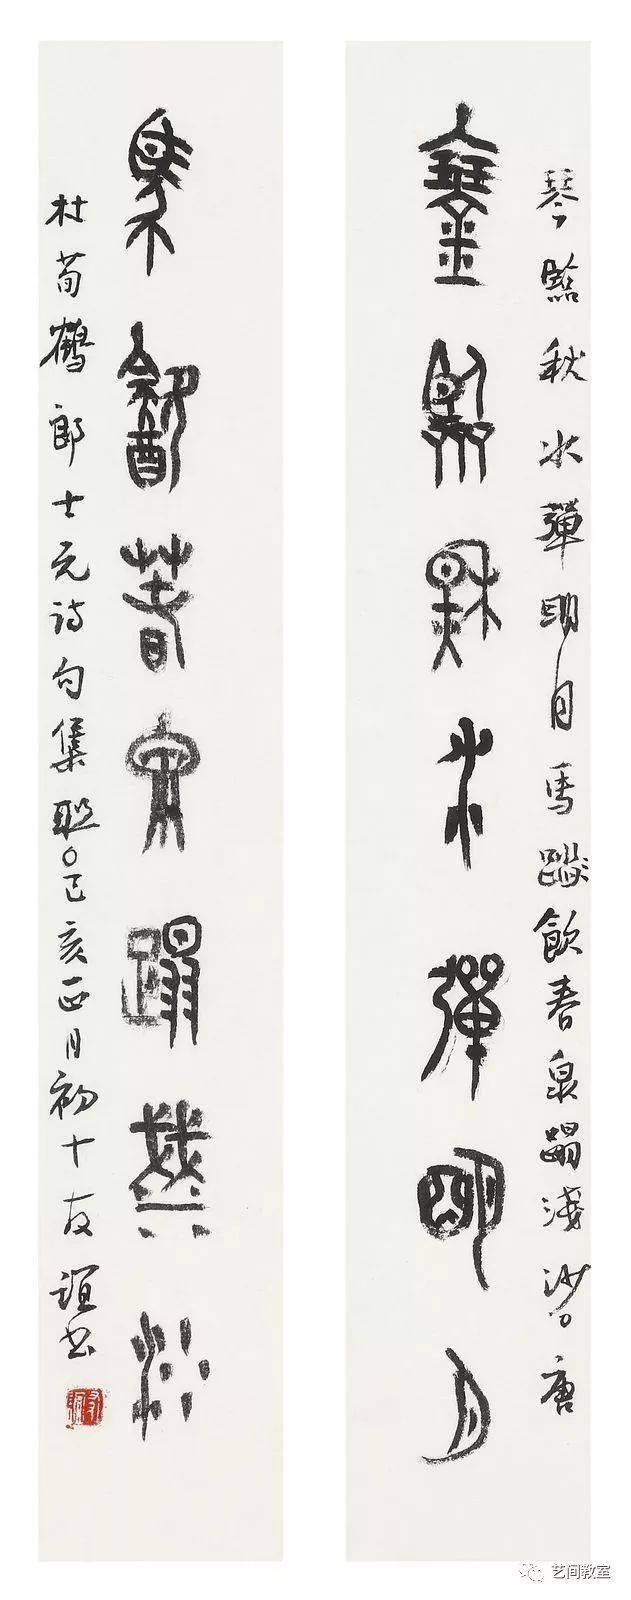 琴臨秋水彈明月馬飲春泉蹋淺沙唐
琴臨秋水彈明月
馬飲春泉蹋淺沙
杜荀鶴郎士元詩句集聯己亥正月初十友誼書
艺间教室